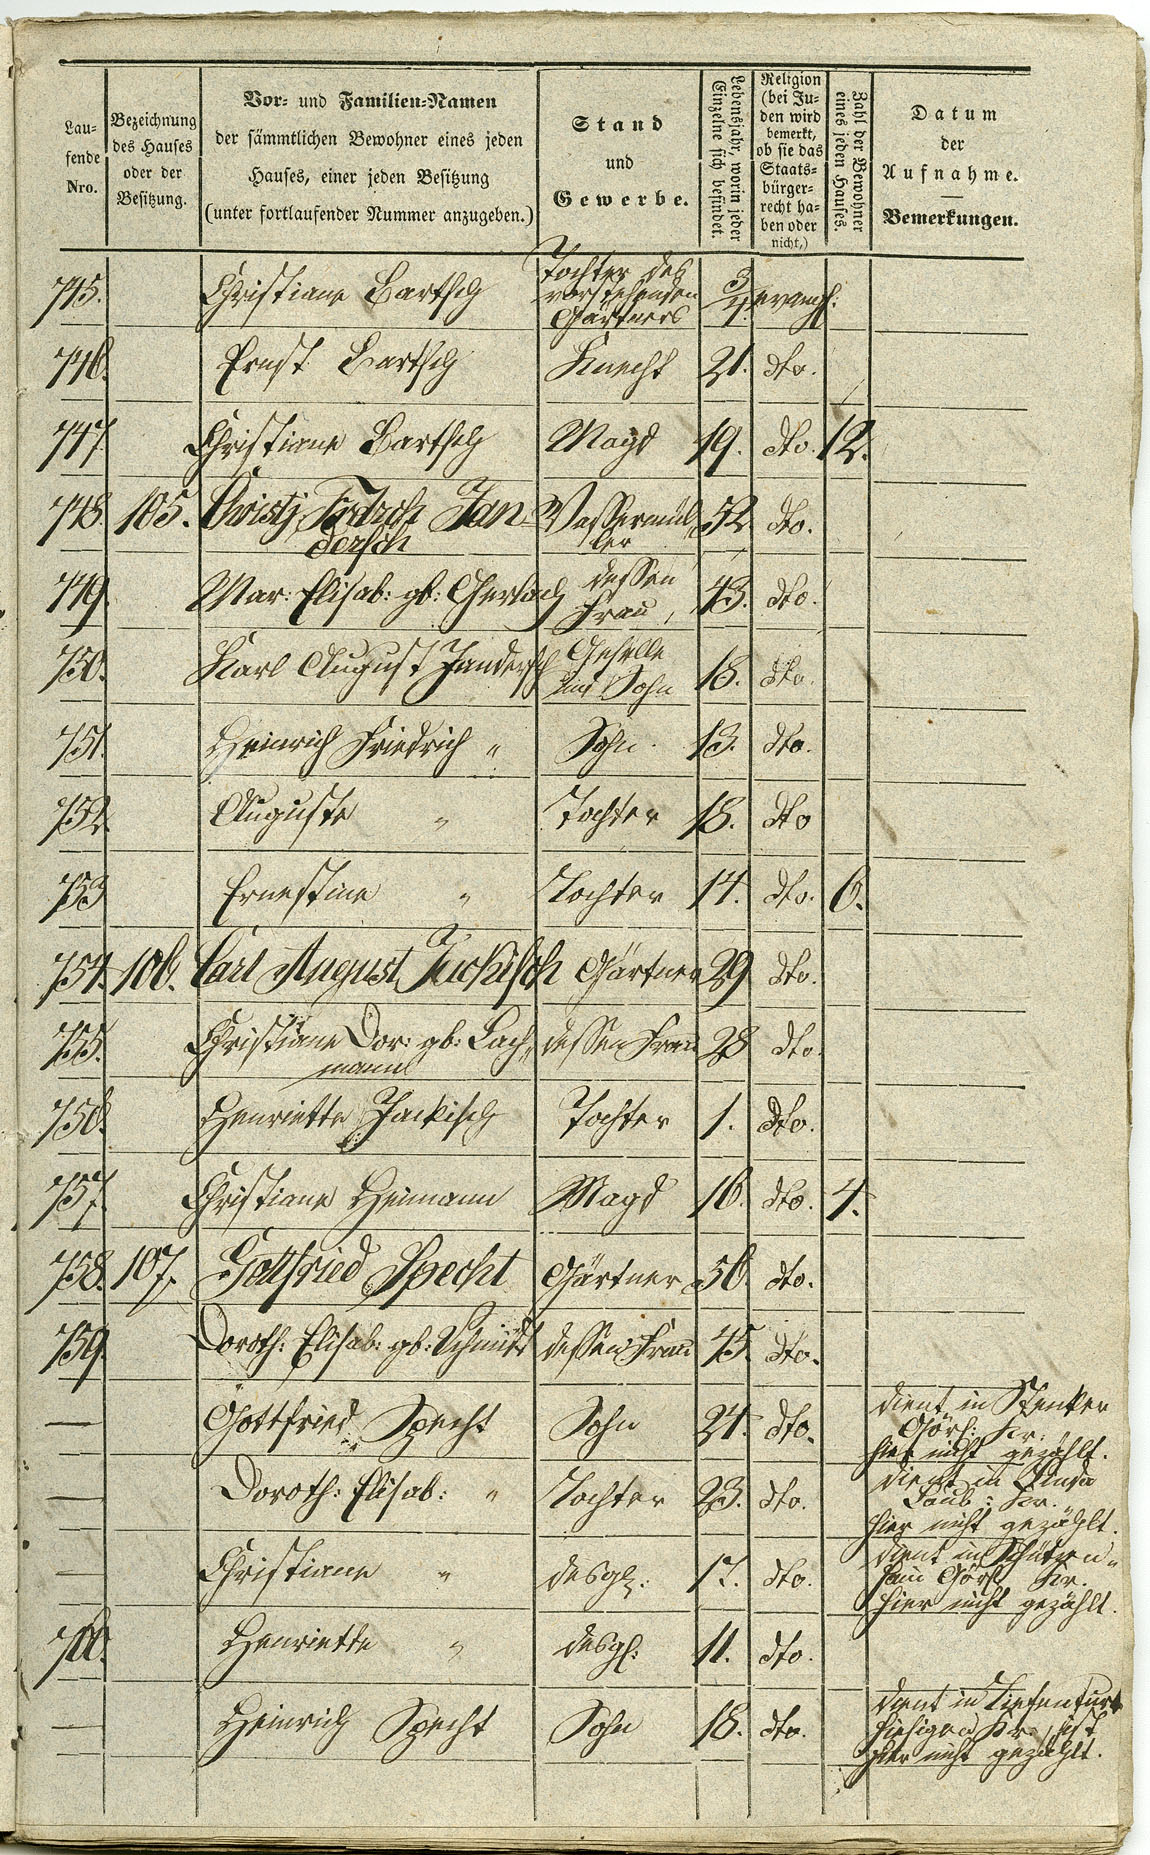 Lau-
fende
Nro.
Bezeichnung
des Hauses
oder der
Besitzung.
Vor- und Familien-Namen
der sämmtlichen Bewohner eines jeden
Hauses, einer jeden Besitzung
(unter fortlaufender Nummer anzugeben.)
Stand
und
Gewerbe.
Lebensjahr, worin jeder
Einzelne sich befindet.
Religion
(bei Ju-
den wird
bemerkt,
ob sie das
Staats-
bürger-
recht ha-
ben oder
nicht,)
Zahl der Bewohner
eines jeden Hauses.
Datum
der
Aufnahme.
Bemerkungen.
745. Christiane Bartsch Tochter des vorstehenden Gärtners 3/4 evangl:
746. Ernst Bartsch Knecht 21. dto.
747. Christiane Bartsch Magd 19. dto. 12.
748. 105. Jandersch Wassermüller 52 dto.
749. Mar: Elisab: gb: Gerlach dessen Frau, 43. dto.
750. Karl August Jandersch Geselle und Sohn 18. dto.
751. Heinrich Friedrich " Sohn. 13. dto.
752. Auguste " Tochter 18. dto
753 Ernestine " Tochter 14. dto. 6.
754. 106. Carl August Jackisch Gärtner 29 dto.
755. Christiane Dor: gb: Lachmann dessen Frau 28 dto.
756. Henriette Jackisch Tochter 1. dto.
757. Christiane Heimann Magd 16. dto. 4.
758. 107. Gottfried Specht Gärtner 56. dto.
759. Doroth: Elisab: gb: Schmidt dessen Frau 45. dto.
— Gottfried Specht Sohn 24. dto. dient in Stenker
Görl: Kr.
hier nicht gezählt.
— Doroth: Elisab: " Tochter 23. dto. dient in Linda
Laub: Kr.
hier nicht gezählt.
— Christiane " desgl. 17. dto. dient in Schützen-
hain Görl Kr.
hier nicht gezählt.
760. Henriette " desgl: 11. dto.
— Heinrich Specht Sohn 18. dto. dient in Tiefenfurt
hiesigen Kr. ist
hier nicht gezählt.